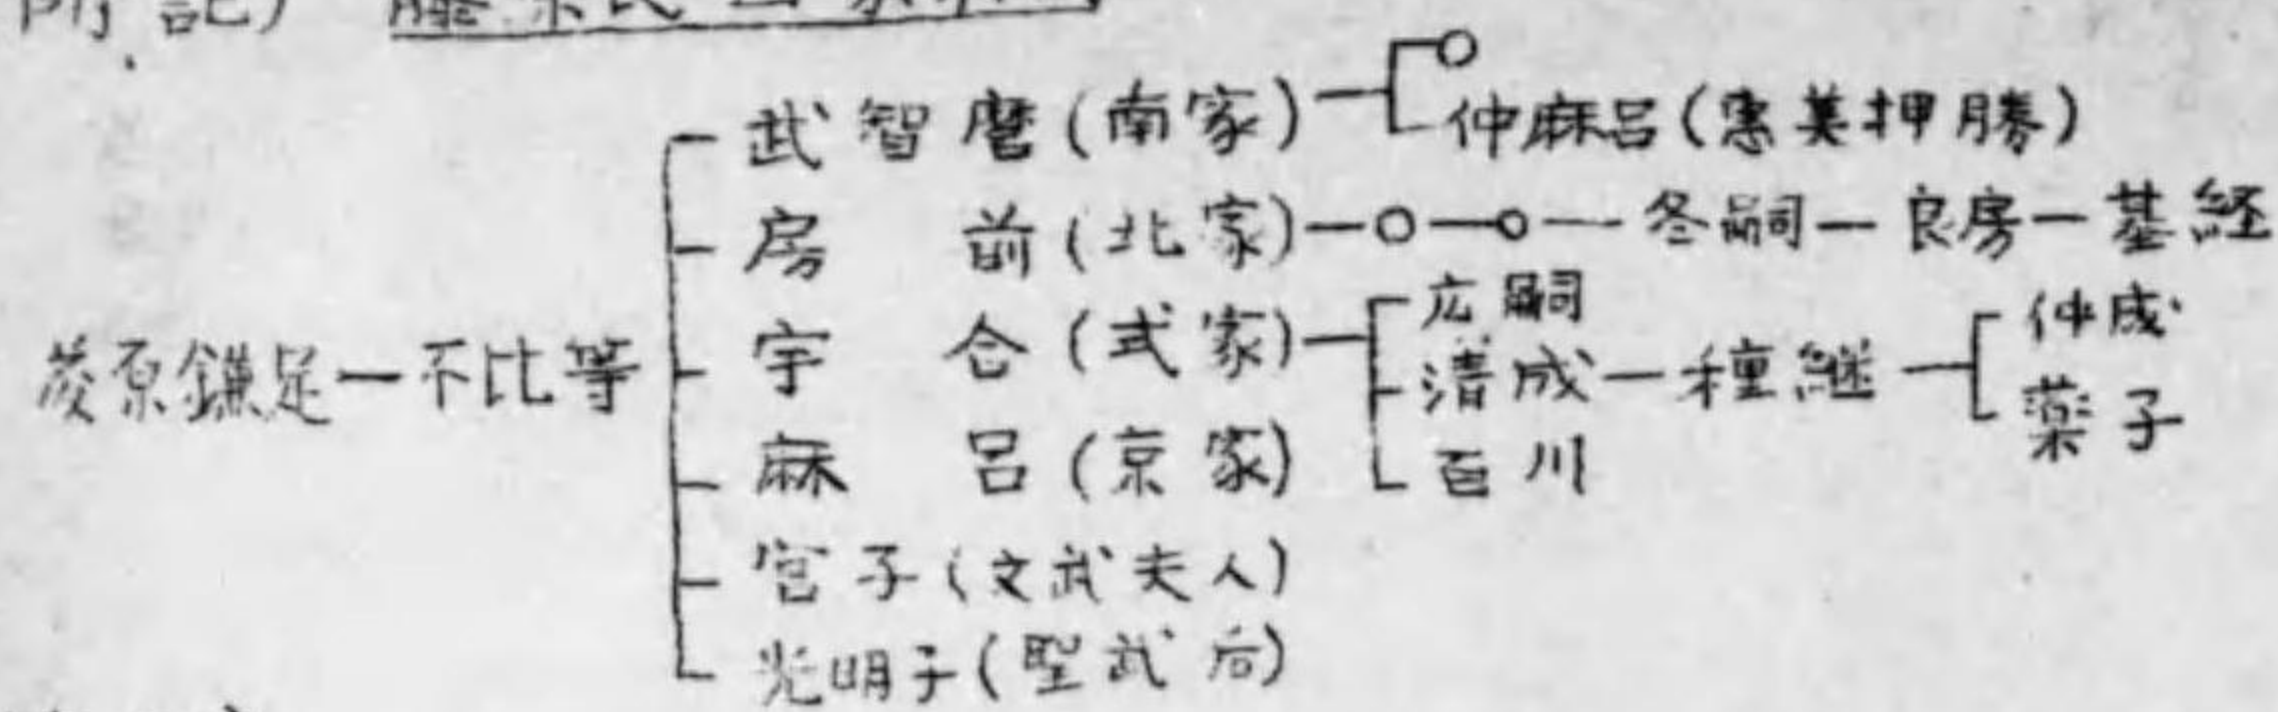 附記) 藤原氏四家系図
武智麿(南家)
仲麻呂(恵美押勝)
房前(北家)―○―○―冬嗣―良房―基経
藤原鎌足―不比等
宇合(式家)
広嗣
清成―種継
仲成
薬子
百川
麻呂(京家)
宮子(文武夫人)
光明子(聖武后)